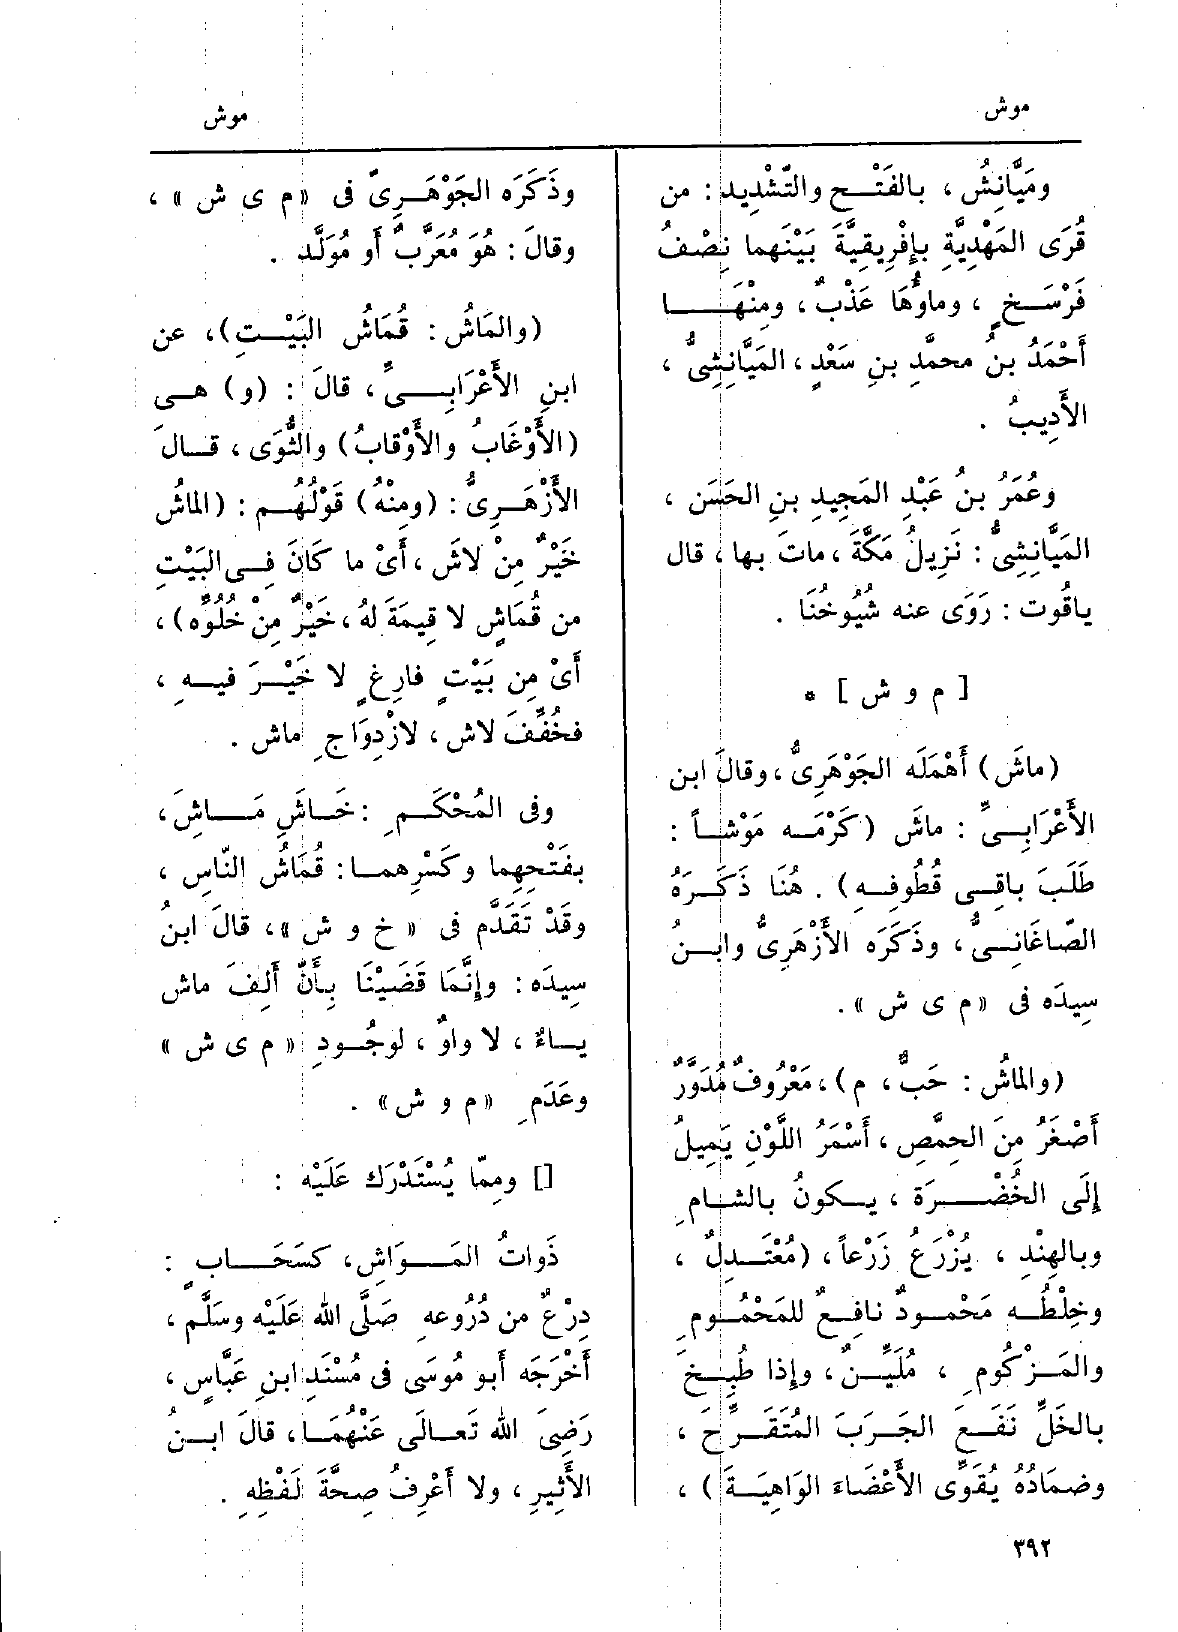 موش
موش
ومَيَّانِشُ ، بالفَتْح والتَّشْدِيد : من
قُرَى المَهْدِيَّةِ بإِفْرِيقِيَّةَ بَيْنَهما نِصْفُ
فَرْسَخٍ ، وماؤُهَا عَذْبٌ ، ومِنْهَا
أَحْمَدُ بنُ محمَّدِ بنِ سَعْدٍ ، المَيَّانِشِىُّ ،
الأَدِيبُ .
وعُمَرُ بنُ عَبْدِ المَجِيدِ بنِ الحَسَن ،
المَيَّانِشِىُّ : نَزِيلُ مَكَّةَ ، ماتَ بها ، قال
ياقُوت : رَوَى عنه شُيُوخُنَا .
[ م و ش ] *
(ماشَ) أَهْمَلَه الجَوْهَرِىُّ ، وقالَ ابن
الأَعْرَابِىِّ : ماش (كَرْمَه مَوْشاً :
طَلَبَ باقِى قُطُوفِهِ) . هُنَا ذَكَرَهُ
الصّاغَانِىُّ ، وذَكَرَه الأَزْهَرِىُّ وابنُ
سِيدَه فى «م ى ش» .
(والماشُ : حَبٌّ ، م) ، مَعْرُوفٌ مُدَوَّرٌ
أَصْغَرُ مِنَ الحِمَّصِ ، أَسْمَرُ اللَّوْنِ يَمِيلُ
إِلَى الخُضْرَة ، يكونُ بالشامِ
وبالهِنْدِ ، يُزْرَعُ زَرْعاً ، (مُعْتَدِلٌ ،
وخِلْطُه مَحْمودٌ نافِعٌ للمَحْمُومِ
والمَزْكُومِ ، مُلَيِّنٌ ، وإِذا طُبِخَ
بالخَلِّ نَفَعَ الجَرَبَ المُتَقَرِّحَ ،
وضمَادُهُ يُقَوِّى الأَعْضَاءَ الوَاهِيَةَ) ،
وذَكَرَه الجَوْهَرِىّ فى «م ى ش» ،
وقالَ : هُوَ مُعَرَّبٌ أَو مُوَلَّد .
(والمَاشُ : قُمَاشُ البَيْتِ) ، عن
ابنِ الأَعْرَابِىِّ ، قالَ : (و) هى
(الأَوْغَابُ والأَوْقابُ) والثُّوَى ، قالَ
الأَزْهَرِىُّ : (ومِنْهُ) قَوْلُهُم : (الماشُ
خَيْرٌ مِنْ لاشَ ، أَىْ ما كَانَ فِى البَيْتِ
من قُمَاشٍ لا قِيمَةَ لهُ ، خَيْرٌ مِنْ خُلُوِّه) ،
أَىْ مِن بَيْتٍ فارِغٍ لا خَيْرَ فيهِ ،
فخُفِّفَ لاش ، لازْدِوَاجِ ماش .
وفى المُحْكَمِ : خَاشَِ مَاشَِ ،
بفَتْحِهِما وكَسْرِهما : قُمَاشُ النّاسِ ،
وقَدْ تَقَدَّم فى « خ و ش » ، قالَ ابنُ
سِيدَه : وإِنَّمَا قَضَيْنَا بأَنَّ أَلِفَ ماش
ياءٌ ، لا واوٌ ، لوجُودِ «م ى ش»
وعَدَمِ «م و ش» .
[] ومِمّا يُسْتَدْرَك عَلَيْه :
ذَواتُ المَوَاشِ ، كسَحَابٍ :
دِرْعٌ من دُرُوعهِ صَلَّى الله عَلَيْه وسَلَّم ،
أَخْرَجَه أَبو مُوسَى فى مُسْنَدِ ابنِ عَبّاسٍ ،
رَضِىَ الله تَعالَى عَنْهُمَا ، قالَ ابنُ
الأَثِيرِ ، ولا أَعْرِفُ صِحَّةَ لَفْظِهِ .
٣٩٢